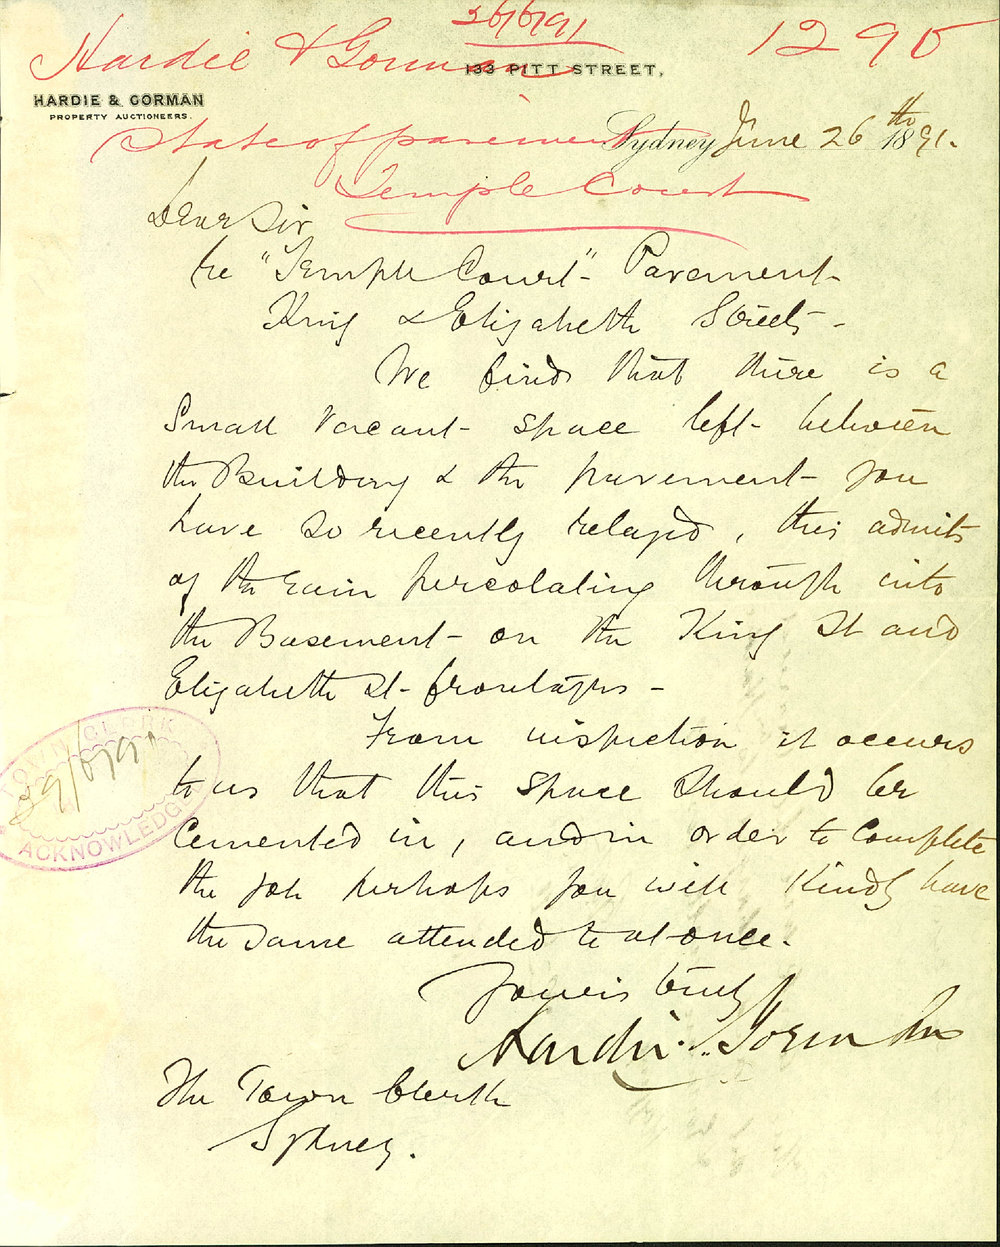 26/6/91
Hardie & Gorman
1295
133 PITT STREET,
HARDIE & GORMAN
PROPERTY AUCTIONEERS.
Sydney June 26th 1891.
State of pavement
Temple Court
Dear Sir
re "Temple Court" Pavement
King & Elizabeth Streets -
We find that there is a
Small vacant space left between
the Building & the pavement you
have so recently relayed, this admits
of the rain percolating through into
the Basement on the King St and
Elizabeth St frontages -
From inspection it occurs
to us that this space should be
Cemented in, and in order to complete
the job perhaps you will Kindly have
the same attended to at once.
Yours truly
Hardie & Gorman
The Town Clerk
Sydney.
TOWN CLERK
29/6/91
ACKNOWLEDGED